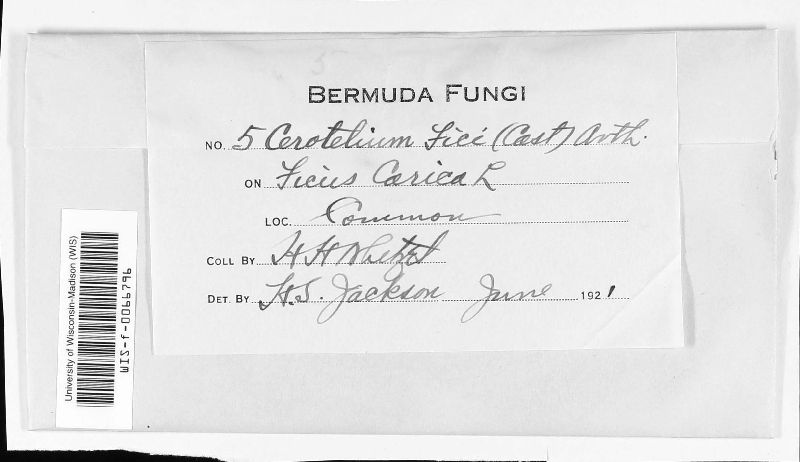 BERMUDA FUNGI
NO. 5 Cerotelium Fici (Cast) Arth.
ON Ficus Carica L
LOC. Common
COLL BY H H Whetzel
DET. BY H.S. Jackson June 1921
University of Wisconsin-Madison (WIS)
WIS-f-0066796